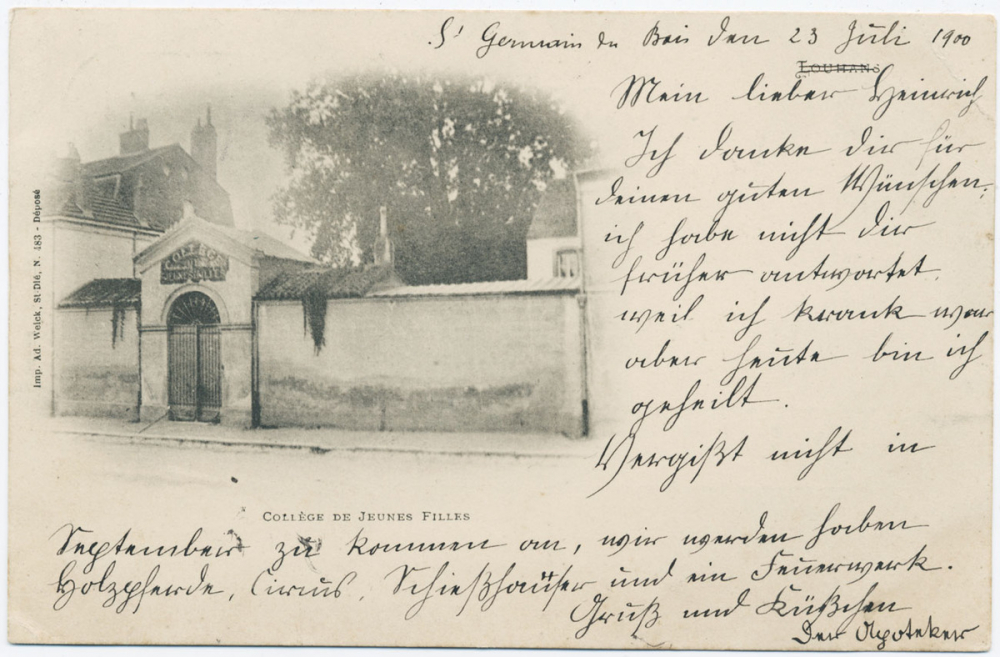 St Germain du Bois den 23 Juli 1900
LOUHANS
Mein lieber Heinrich
Ich danke dir für
deinen guten Wünschen,
ich habe nicht dir
früher antwortet.
weil ich krank war
aber heute bin ich
geheilt.
Vergißt nicht in
September zu kommen an, wir werden haben
Holzpferde, Circus, Schießhaüser und ein Feuerwerk.
Gruß und Küßchen
Der Apoteker
COLLÈGE
DE
JEUNES FILLES
Imp. Ad. Weick, St-Dié, N. 483 - Déposé
COLLÈGE DE JEUNES FILLES